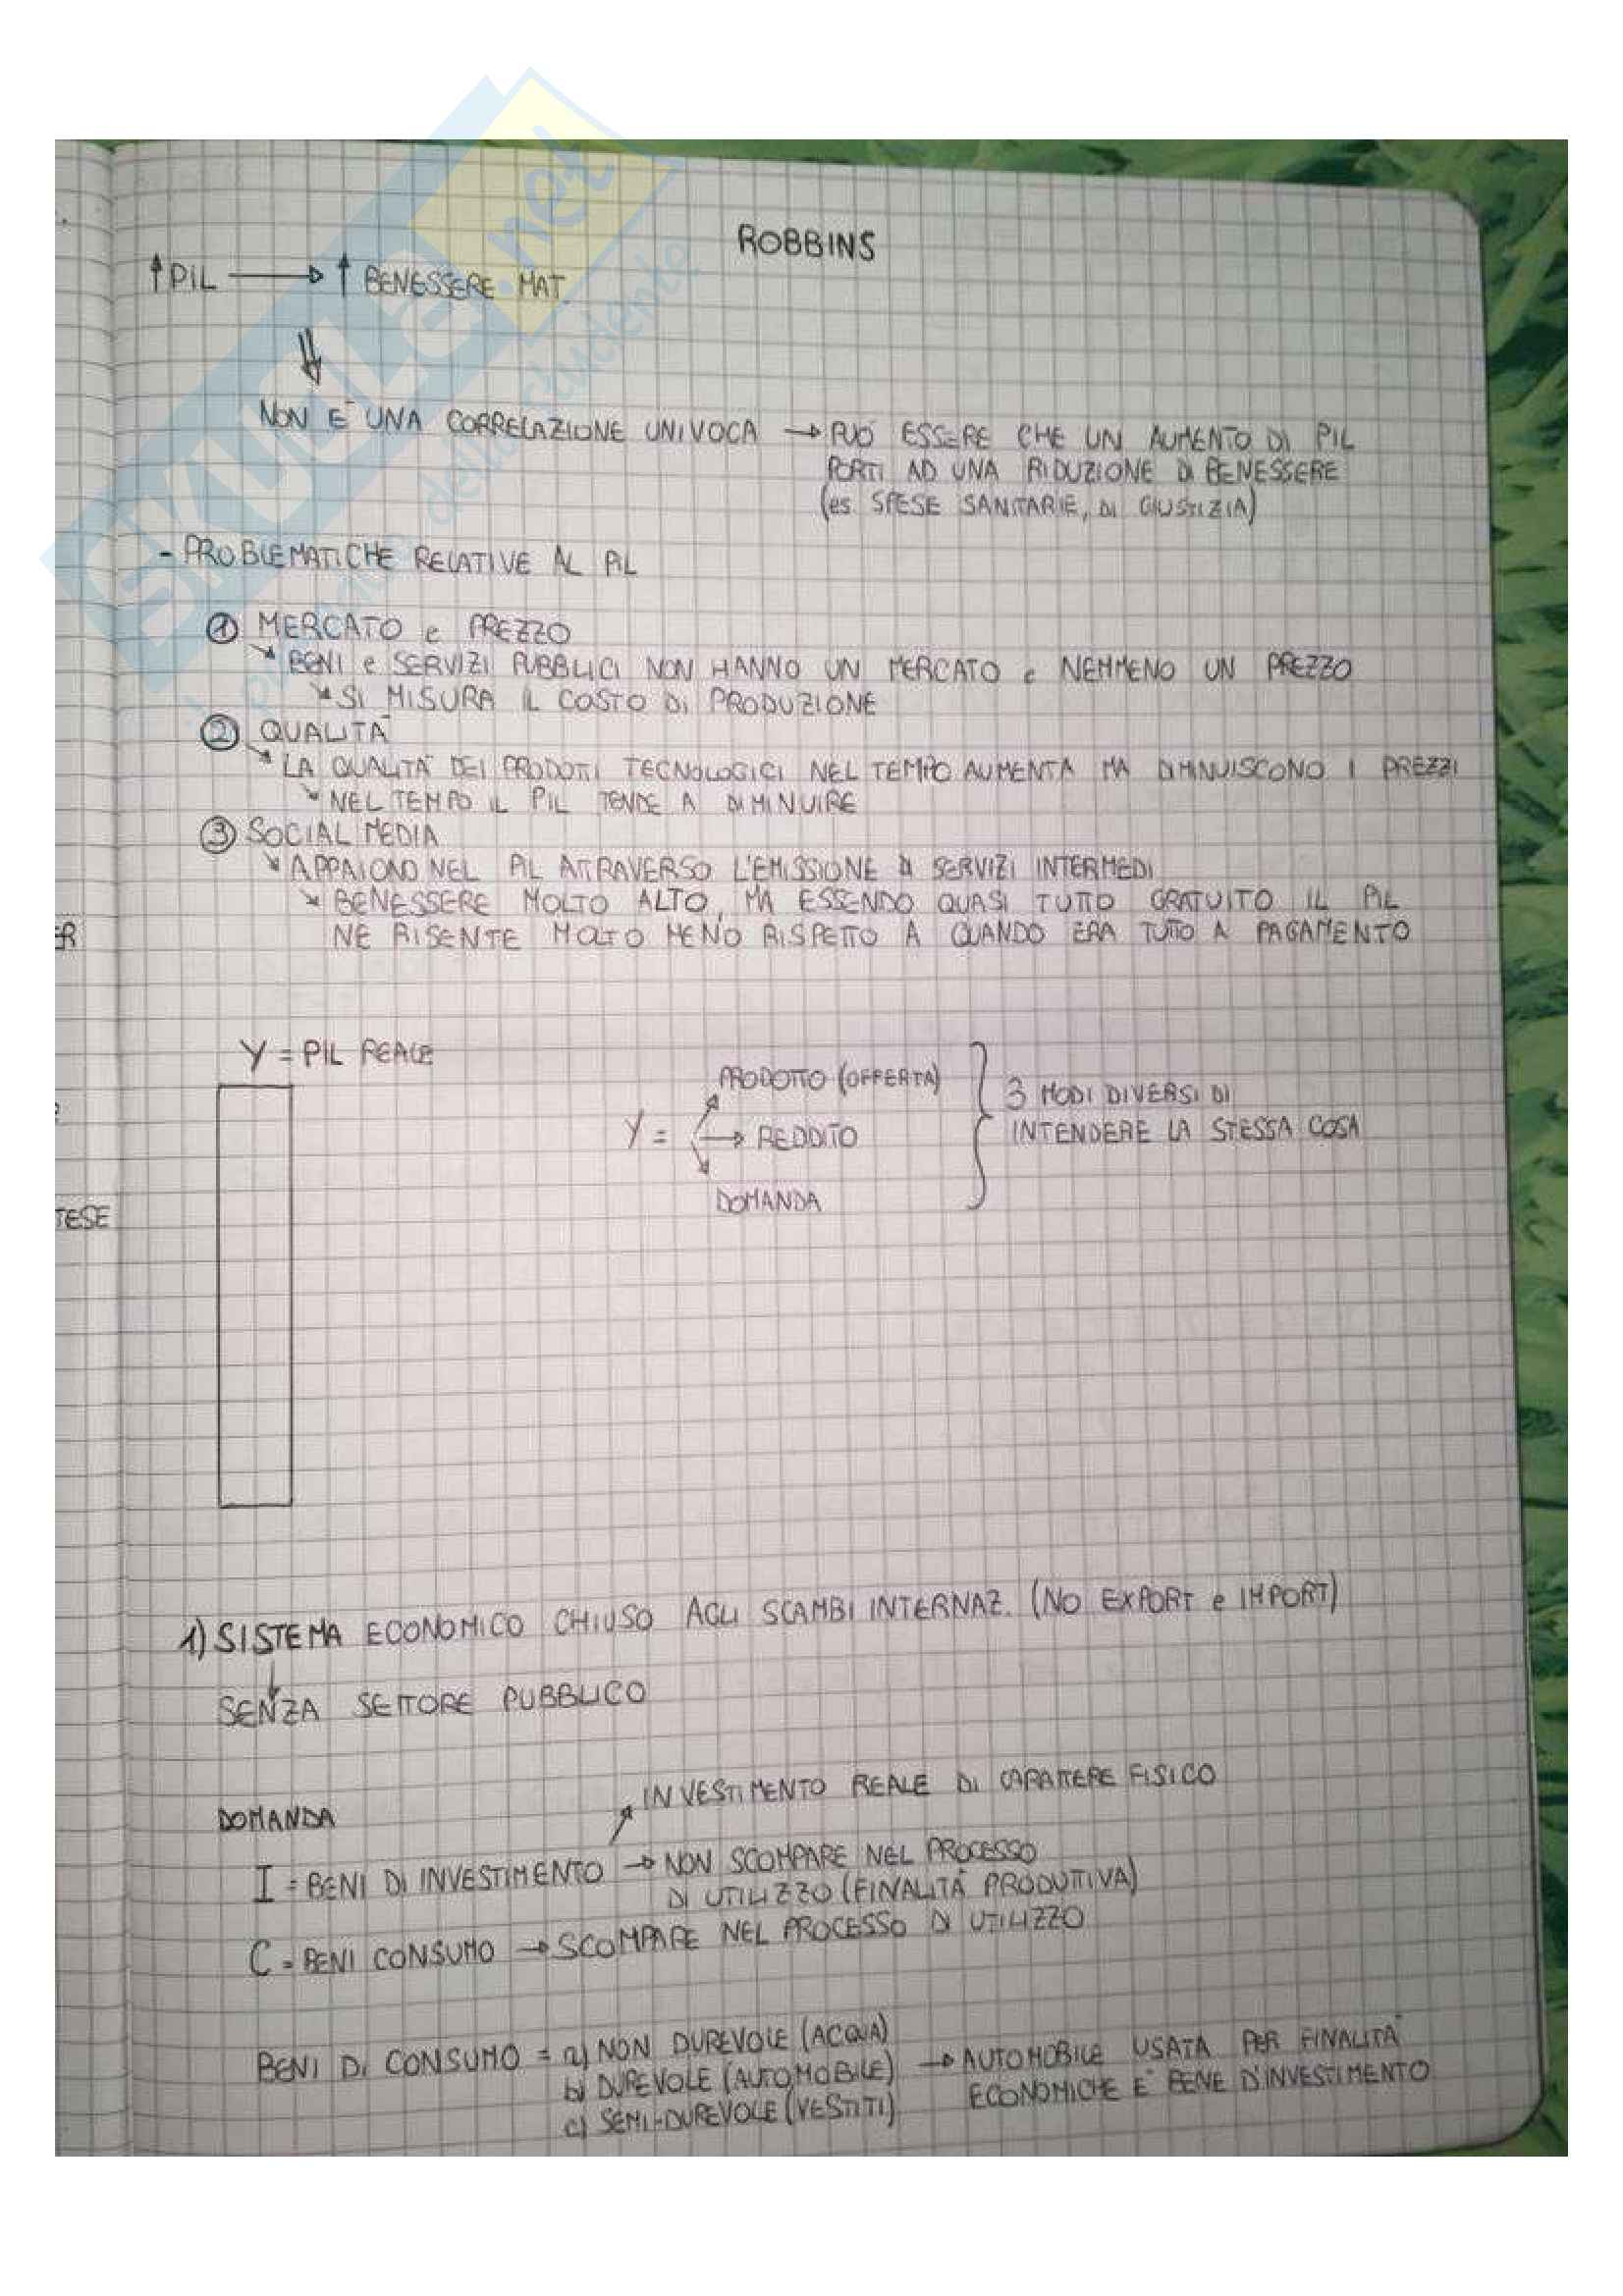 ROBBINS
↑ PIL → ↑ BENESSERE MAT.
⇓
NON E' UNA CORRELAZIONE UNIVOCA → PUÒ ESSERE CHE UN AUMENTO DI PIL
PORTI AD UNA RIDUZIONE DI BENESSERE
(es. SPESE SANITARIE, DI GIUSTIZIA)
- PROBLEMATICHE RELATIVE AL PIL
① MERCATO e PREZZO
↘ BENI e SERVIZI PUBBLICI NON HANNO UN MERCATO e NEMMENO UN PREZZO
↘ SI MISURA IL COSTO DI PRODUZIONE
② QUALITÀ
↘ LA QUALITÀ DEI PRODOTTI TECNOLOGICI NEL TEMPO AUMENTA MA DIMINUISCONO I PREZZI
↘ NEL TEMPO IL PIL TENDE A DIMINUIRE
③ SOCIAL MEDIA
↘ APPAIONO NEL PIL ATTRAVERSO L'EMISSIONE DI SERVIZI INTERMEDI
↘ BENESSERE MOLTO ALTO, MA ESSENDO QUASI TUTTO GRATUITO IL PIL
NE RISENTE MOLTO MENO RISPETTO A QUANDO ERA TUTTO A PAGAMENTO
ER
Y = PIL REALE
PRODOTTO (OFFERTA)
Y = → REDDITO
DOMANDA
3 MODI DIVERSI DI
INTENDERE LA STESSA COSA
TESE
1) SISTEMA ECONOMICO CHIUSO AGLI SCAMBI INTERNAZ. (NO EXPORT e IMPORT)
↓
SENZA SETTORE PUBBLICO
INVESTIMENTO REALE DI CARATTERE FISICO
DOMANDA
I = BENI DI INVESTIMENTO → NON SCOMPARE NEL PROCESSO
DI UTILIZZO (FINALITÀ PRODUTTIVA)
C = BENI CONSUMO → SCOMPARE NEL PROCESSO DI UTILIZZO
BENI DI CONSUMO = a) NON DUREVOLE (ACQUA)
b) DUREVOLE (AUTOMOBILE) → AUTOMOBILE USATA PER FINALITÀ
ECONOMICHE E' BENE D'INVESTIMENTO
c) SEMI-DUREVOLE (VESTITI)
SKUOLA.net